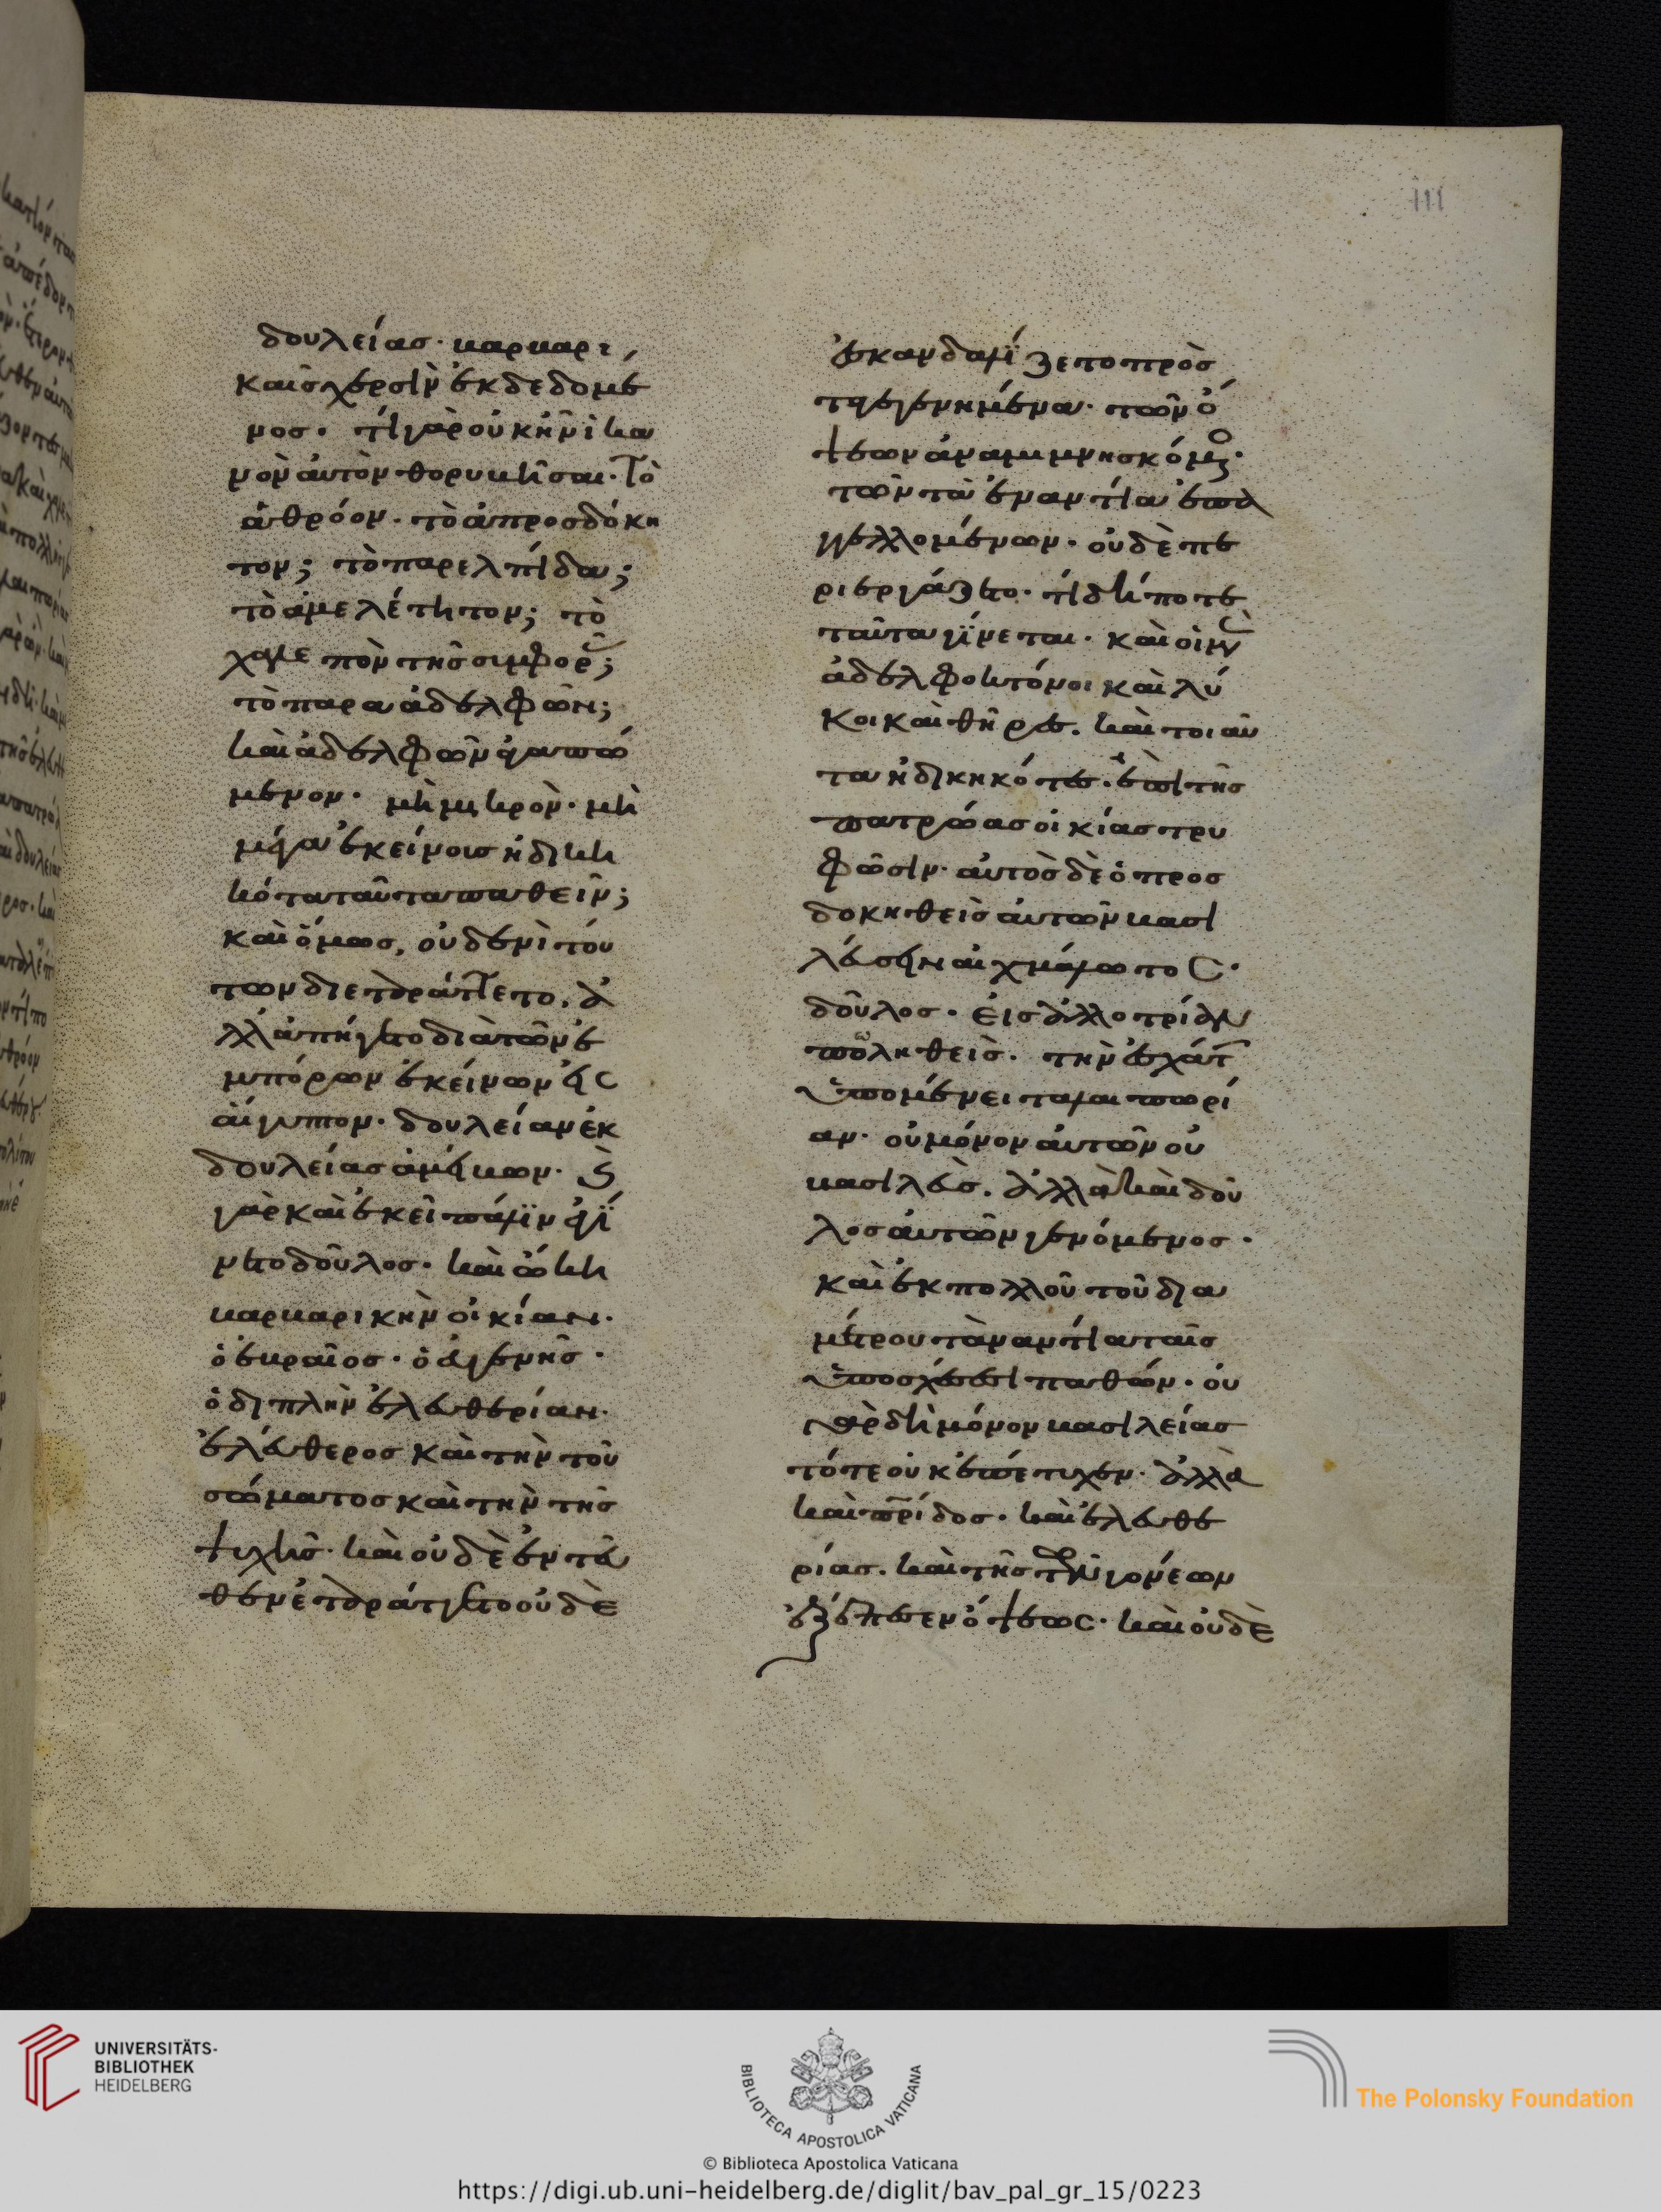 111
δουλείας· βαρβαρι
καῖς χερσὶν ἐκδεδομέ
νος· τί γὰρ οὐκ ἦν ἱκα
νὸν αὐτὸν θορυβῆσαι· Τὸ
ἀθρόον· τὸ ἀπροσδόκη
τον; τὸ παρελπίδα;
τὸ ἀμελέτητον; τὸ
χαλεπὸν τῆς συμφορᾶς;
τὸ παρα ἀδελφῶν;
καὶ ἀδελφῶν ἀγαπω
μενον· μὴ μικρὸν· μὴ
μέγα ἐκείνοις ἠδικη
κότα ταῦτα παθεῖν;
καὶ ὅμως, οὐδενὶ τού
των διεταράττετο. ἀ
λλ' ἀπήγετο διὰ τῶν ἐ
μπόρων ἐκείνων εἰς
αἴγυπτον· δουλείαν ἐκ
δουλείας ἀμείβων· καὶ
γὰρ καὶ ἐκεῖ πάλϊν ἐγΐ
νετο δοῦλος· καὶ ὤκη
βαρβαρικὴν οἰκίαν·
ὁ ἑβραῖος· ὁ εὐγενὴς·
ὁ διπλὴν ἐλευθερίαν·
ἐλεύθερος καὶ τὴν τοῦ
σώματος καὶ τὴν τῆς
ψυχῆς· καὶ οὐδὲ ἐντεῦ
θεν ἐταράττετο οὐδὲ
ἐσκανδαλΐζετο πρὸς
τὰ γεγενημένα· τῶν ὄ
ψεων ἀναμιμνησκόμενος·
τῶν τὰ ἐναντία ἐπα
γγελλομένων· οὐδὲ πε
ριεργάζετο· τί δήποτε
ταῦτα γΐνεται· καὶ οἱ μὲν
ἀδελφοκτόνοι καὶ λύ
κοι καὶ θῆρες. καὶ τοιαῦ
τα ἠδικηκότες. ἐπὶ τῆς
πατρώας οἰκίας τρυ
φῶσιν· αὐτὸς δὲ ὁ προσ
δοκηθεὶς αὐτῶν βασι
λεύσειν αἰχμάλωτος·
δοῦλος· εἰς ἀλλοτρίαν
πωληθεὶς· τὴν ἐσχάτην
ὑπομένει ταλαιπωρί
αν· οὐ μόνον αὐτῶν οὐ
βασιλεὺς. ἀλλὰ καὶ δοῦ
λος αὐτῶν γενόμενος·
καὶ ἐκ πολλοῦ τοῦ δια
μέτρου τὰναντία ταῖς
ὑποσχέσεσι παθών· οὐ
γὰρ δὴ μόνον βασιλείας
τότε οὐκ ἐπέτυχεν· ἀλλὰ
καὶ πρίδος· καὶ ἐλευθε
ρίας. καὶ τῆς τῶν γονέων
ἐξέπεσεν ὄψεως· καὶ οὐδὲ
UNIVERSITÄTS-
BIBLIOTHEK
HEIDELBERG
BIBLIOTECA APOSTOLICA VATICANA
The Polonsky Foundation
© Biblioteca Apostolica Vaticana
https://digi.ub.uni-heidelberg.de/diglit/bav_pal_gr_15/0223